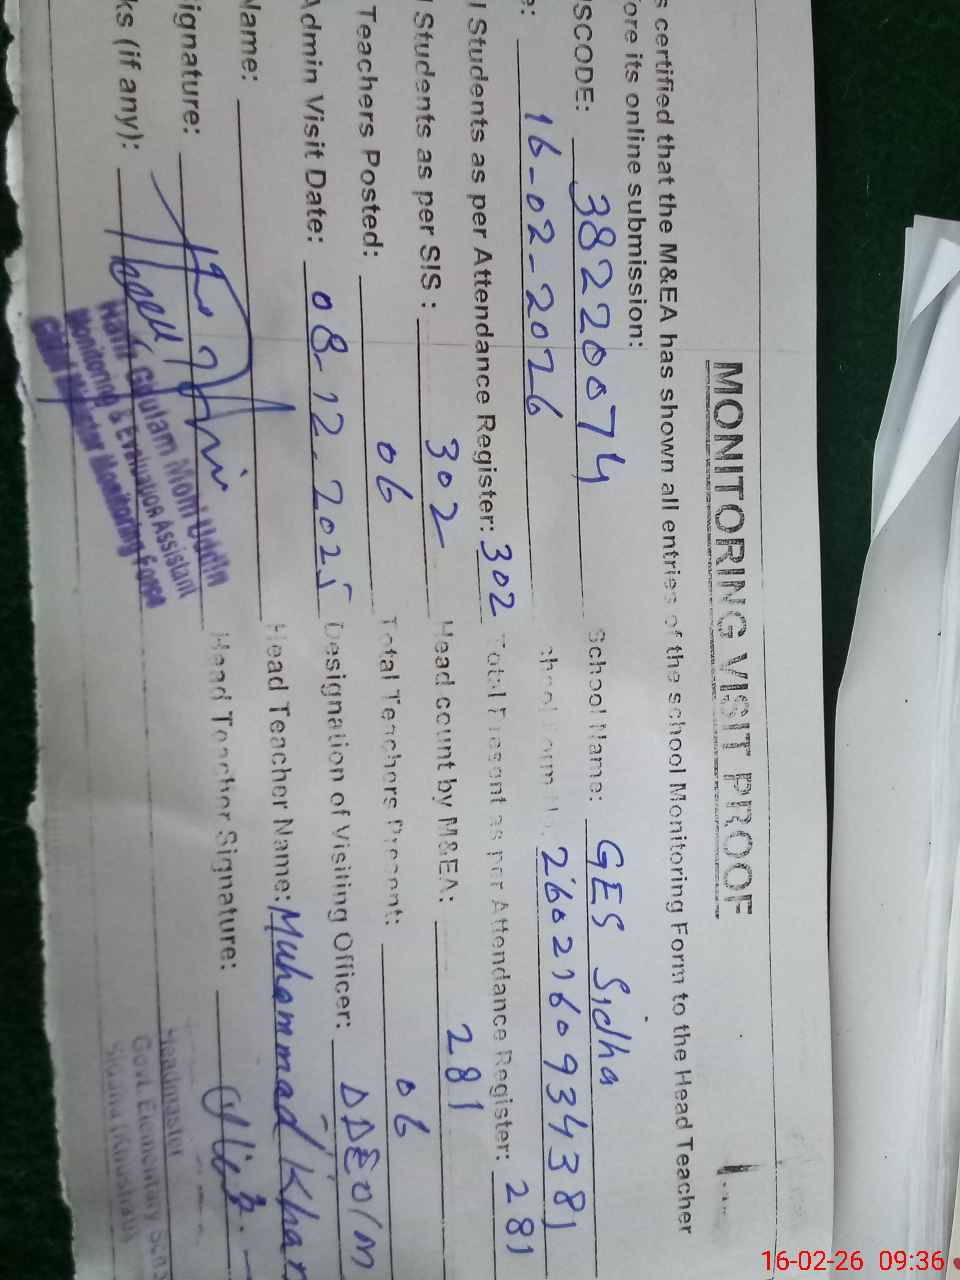 MONITORING VISIT PROOF
s certified that the M&EA has shown all entries of the school Monitoring Form to the Head Teacher
ore its online submission:
SCODE: 38220074 School Name: GES Sidha
e: 16-02-2026 2602160934381
l Students as per Attendance Register: 302 Total Present as per Attendance Register: 281
l Students as per SIS: 302 Head count by M&EA: 281
Teachers Posted: 06 Total Teachers Present: 06
Admin Visit Date: 08-12-2025 Designation of Visiting Officer: DDEO/M
Name: Head Teacher Name: Muhammad Khan
ignature: Head Teacher Signature:
ks (if any):
Ghulam Mohi Uddin
Monitoring & Evaluation Assistant
Chief Minister Monitoring Force
Headmaster
Govt. Elementary School
(Khushab)
16-02-26 09:36